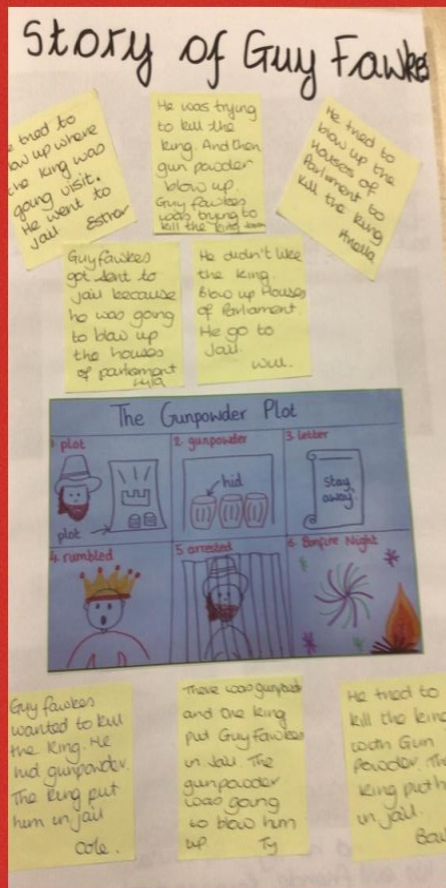 Story of Guy Fawkes
tried to
blow up where
the king was
going visit.
He went to
jail Esther
He was trying
to kill the
king. And then
gun powder
blow up.
Guy fawkes
was trying to
kill the king
He tried to
blow up the
Houses of
Parliament to
kill the king
Guy fawkes
got sent to
jail because
he was going
to blow up
the houses
of parliament
Lyla
He didn't like
the king.
Blow up Houses
of Parliament.
He go to
Jail.
Will.
The Gunpowder Plot
1. plot
plot
2. gunpowder
hid
3. letter
stay
away.
4. rumbled
5. arrested
6. Bonfire Night
Guy fawkes
wanted to kill
the King. He
hid gunpowder.
The King put
him in jail
Cole.
There was gunpowder
and the king
put Guy Fawkes
in Jail. The
gunpowder
was going
to blow him
up Ty
He tried to
kill the king
with Gun
Powder. The
King put h
in jail.